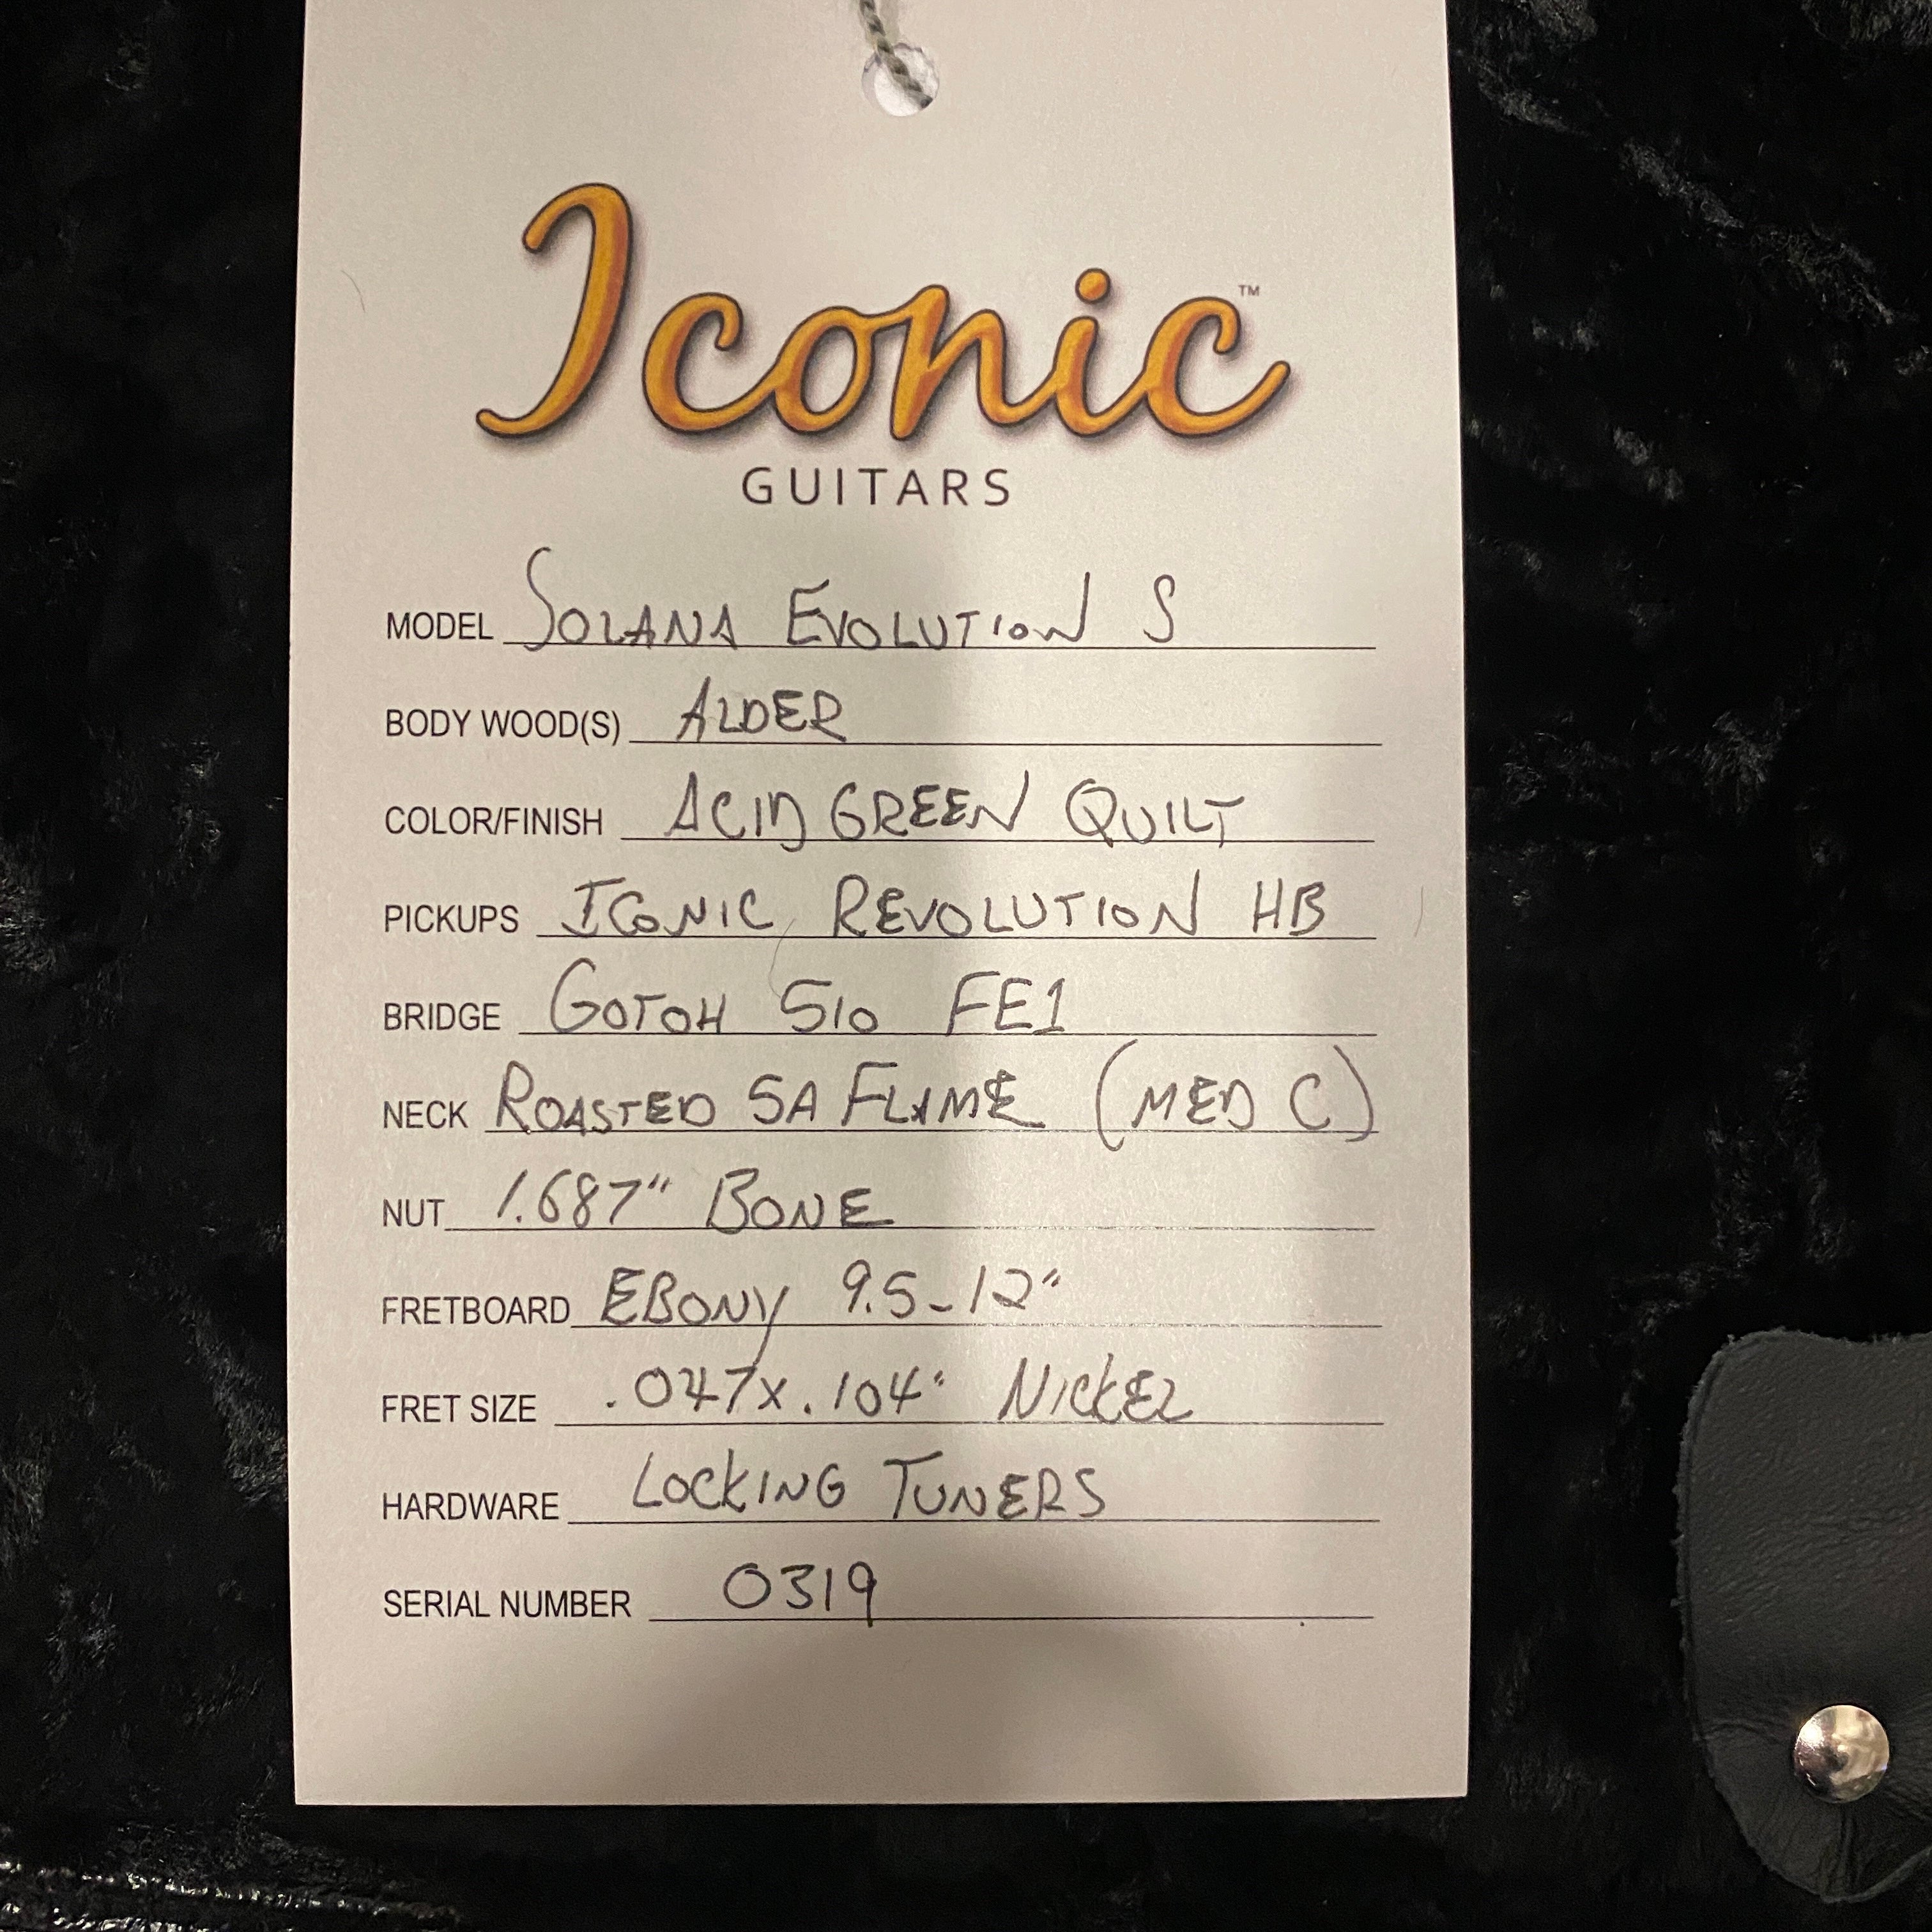 Iconic™
GUITARS
MODEL SOLANA EVOLUTION S
BODY WOOD(S) ALDER
COLOR/FINISH ACID GREEN QUILT
PICKUPS ICONIC REVOLUTION HB
BRIDGE GOTOH 510 FE1
NECK ROASTED 5A FLAME (MED C)
NUT 1.687" BONE
FRETBOARD EBONY 9.5-12"
FRET SIZE .047x.104" NICKEL
HARDWARE LOCKING TUNERS
SERIAL NUMBER 0319